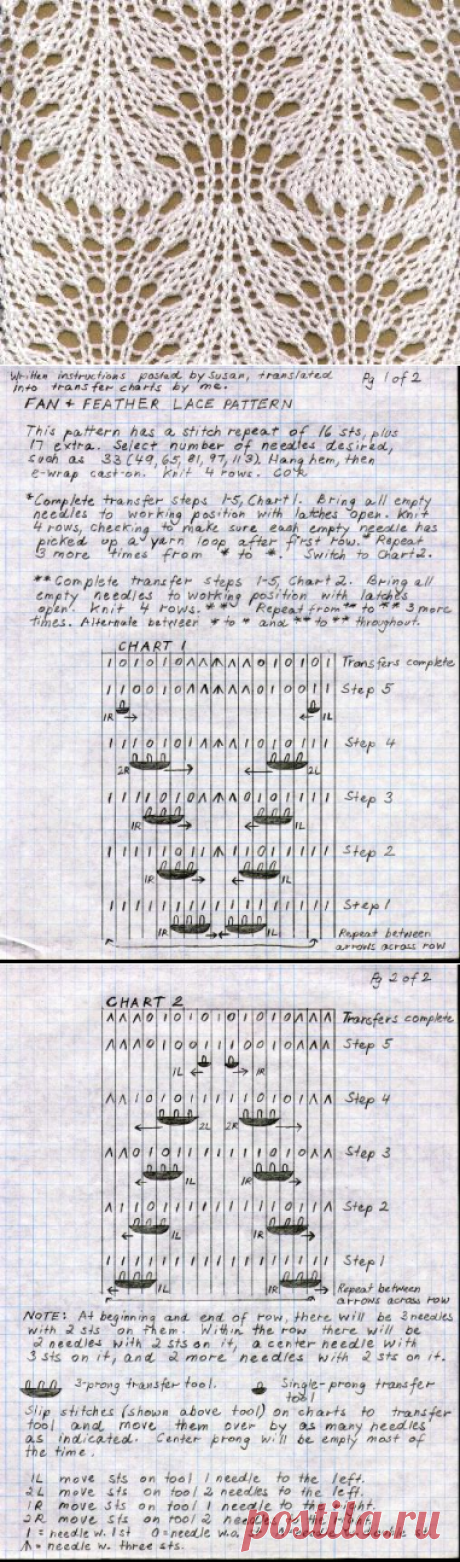 Written instructions posted by Susan, translated
into transfer charts by me.
Pg 1 of 2
FAN + FEATHER LACE PATTERN
This pattern has a stitch repeat of 16 sts, plus
17 extra. Select number of needles desired,
such as 33 (49, 65, 81, 97, 113). Hang hem, then
e-wrap cast-on. Knit 4 rows.
*Complete transfer steps 1-5, Chart 1. Bring all empty
needles to working position with latches open. Knit
4 rows, checking to make sure each empty needle has
picked up a yarn loop after first row.* Repeat
3 more times from * to *. Switch to Chart 2.
**Complete transfer steps 1-5, Chart 2. Bring all
empty needles to working position with latches
open. Knit 4 rows.** Repeat from ** to ** 3 more
times. Alternate between * to * and ** to ** throughout.
CHART 1
Transfers complete
Step 5
1R 1L
Step 4
2R 2L
Step 3
1R 1L
Step 2
1R 1L
Step 1
1R 1L
Repeat between
arrows across row
Pg 2 of 2
CHART 2
Transfers complete
Step 5
1L 1R
Step 4
2L 2R
Step 3
1L 1R
Step 2
1L 1R
Step 1
1L 1R
Repeat between
arrows across row
NOTE: At beginning and end of row, there will be 3 needles
with 2 sts on them. Within the row there will be
2 needles with 2 sts on it, a center needle with
3 sts on it, and 2 more needles with 2 sts on it.
3-prong transfer tool.
Single-prong transfer
tool
Slip stitches (shown above tool) on charts to transfer
tool and move them over by as many needles
as indicated. Center prong will be empty most of
the time.
1L move sts on tool 1 needle to the left.
2L move sts on tool 2 needles to the left.
1R move sts on tool 1 needle to the right.
2R move sts on tool 2 needles to the right.
1 = needle w. 1 st 0 = needle w.o. st
Λ = needle w. three sts.
postila.ru